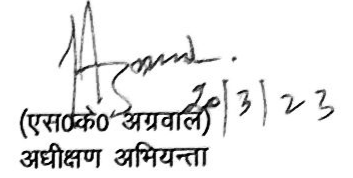 20/3/23
(एस0के0 अग्रवाल)
अधीक्षण अभियन्ता